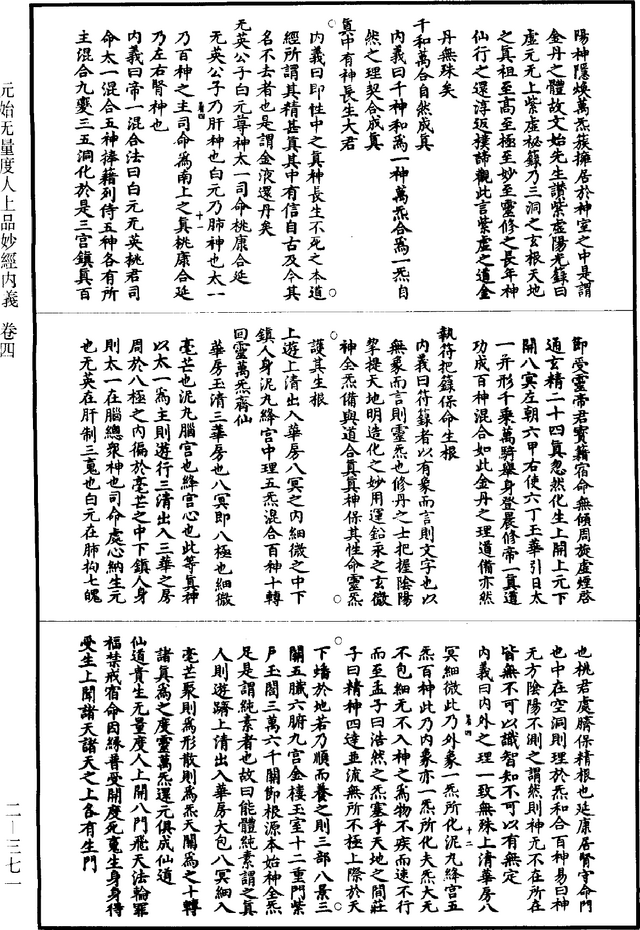 陽神隱煥萬炁族擁居於神室之中是謂
金丹之體故文始先生讚紫虛陽光籙曰
虛元无上紫虛祕籙乃三洞之玄根天地
之真祖至高至極至妙至靈修之長年神
仙行之還淳返樸諦觀此言紫虛之道金
丹無殊矣
千和萬合自然成真
內義曰千神和為一神萬炁合為一炁自
然之理契合成真
真中有神長生大君
內義曰即性中之真神長生不死之本道
經所謂其精甚真其中有信自古及今其
名不去者也是謂金液還丹矣
无英公子白元尊神太一司命桃康合延
无英公子乃肝神也白元乃肺神也太一
乃百神之主司命為南上之真桃康合延
乃左右腎神也
內義曰帝一混合法曰白元无英桃君司
命太一混合五神捧藉列侍五種各有所
主混合九變三五洞化於是三宮鎮真百
節受靈帝君寶籍宿命無傾周旋虛煌啓
道玄精二十四真忽然化生上開上元下
開八冥左朝六甲右使六丁玉華引日太
一并形千乘萬騎舉身登晨修帝一真道
功成百神混合如此金丹之理道備亦然
執符把籙保命生根
內義曰符籙者以有象而言則文字也以
無象而言則靈炁也修丹之士把握陰陽
挈提天地明造化之妙用運鉛汞之玄微
神全炁備與道合真真神保其性命靈炁
護其生根
上遊上清出入華房八冥之內細微之中下
鎮人身泥丸絳宮中理五炁混合百神十轉
回靈萬炁齊仙
華房玉清三華房也八冥即八極也細微
毫芒也泥丸腦宮也絳宮心也此等真神
以太一為主則遊行三清出入三華之房
周於八極之內徧於毫芒之中下鎮人身
則太一在腦總衆神也司命處心納生元
也无英在肝制三魂也白元在肺拘七魄
也桃君處臍保精根也延康居腎守命門
也中在空洞則理於炁和合百神易曰神
无方陰陽不測之謂然則神无不在所在
皆無不可以識智知不可以有無定
內義曰內外之理一致無殊上清華房八
冥細微此乃外象一炁所化泥丸絳宮五
炁百神此乃內象亦一炁所化夫炁大无
不包細无不入神之為物不疾而速不行
而至孟子曰浩然之炁塞乎天地之間莊
子曰精神四達並流無所不極上際於天
下蟠於地若乃順而養之則三部八景三
關五臟六腑九宮金樓玉室十二重門紫
戶玉閤三萬六千關節根源本始神全炁
足是謂純素者也故曰能體純素謂之真
人則遊躋上清出入華房大包八冥細入
毫芒聚則為形散則為炁天關為之十轉
諸真為之度靈萬炁還元俱成仙道
仙道貴生无量度人上開八門飛天法輪罪
福禁戒宿命因緣普受開度死魂生身身得
受生上聞諸天諸天之上各有生門
元始无量度人上品妙經內義 卷四
二—三七一